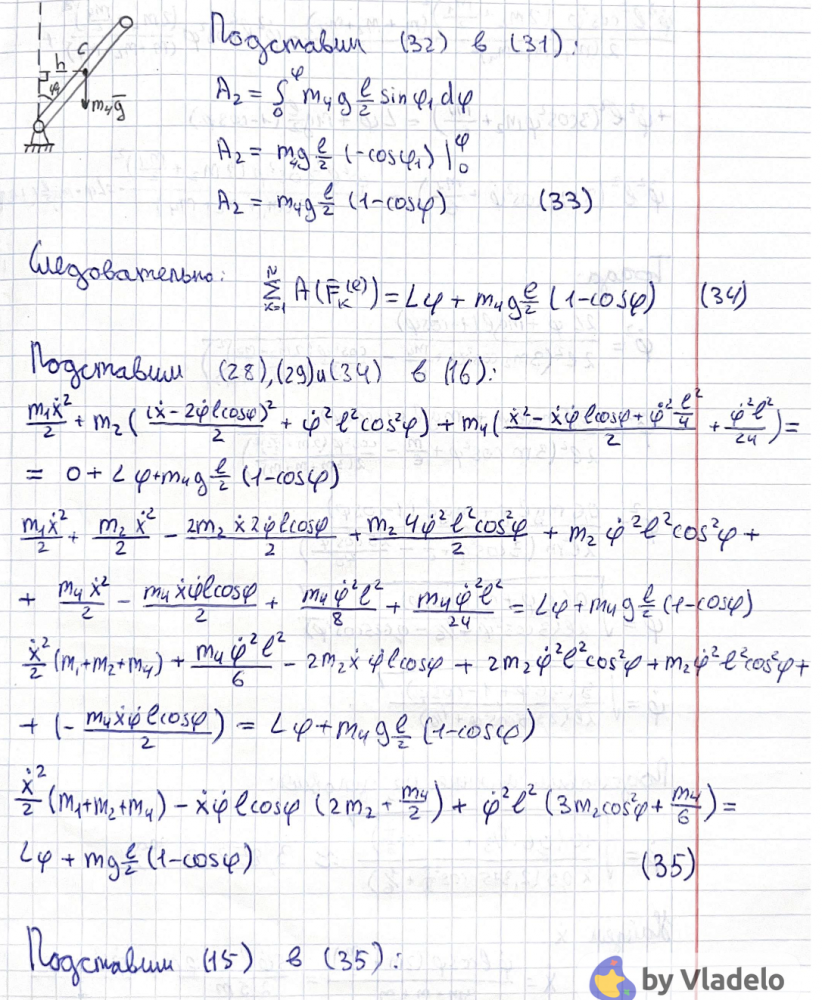 Подставим (32) в (31):
h C φ m₄g̅
A₂ = ∫₀^φ m₄g l/2 sinφ₁dφ
A₂ = m₄g l/2 (-cosφ₁)|₀^φ
A₂ = m₄g l/2 (1-cosφ) (33)
Следовательно: Σ_{k=1}^{N} A(F̅_K^{(e)}) = Lφ + m₄g l/2 (1-cosφ) (34)
Подставим (28),(29)и(34) в (16):
m₁ẋ²/2 + m₂((ẋ-2φ̇lcosφ)²/2 + φ̇²l²cos²φ) + m₄((ẋ²-ẋφ̇lcosφ+φ̇²l²/4)/2 + φ̇²l²/24) =
= 0 + Lφ+m₄g l/2 (1-cosφ)
m₁ẋ²/2 + m₂ẋ²/2 - 2m₂ẋ2φ̇lcosφ/2 + m₂4φ̇²l²cos²φ/2 + m₂φ̇²l²cos²φ +
+ m₄ẋ²/2 - m₄ẋφ̇lcosφ/2 + m₄φ̇²l²/8 + m₄φ̇²l²/24 = Lφ+m₄g l/2 (1-cosφ)
ẋ²/2 (m₁+m₂+m₄) + m₄φ̇²l²/6 - 2m₂ẋφ̇lcosφ + 2m₂φ̇²l²cos²φ+m₂φ̇²l²cos²φ+
+ (- m₄ẋφ̇lcosφ/2) = Lφ+m₄g l/2 (1-cosφ)
ẋ²/2 (m₁+m₂+m₄) - ẋφ̇lcosφ (2m₂+m₄/2) + φ̇²l² (3m₂cos²φ+m₄/6) =
Lφ + mg l/2 (1-cosφ) (35)
Подставим (15) в (35):
by Vladelo